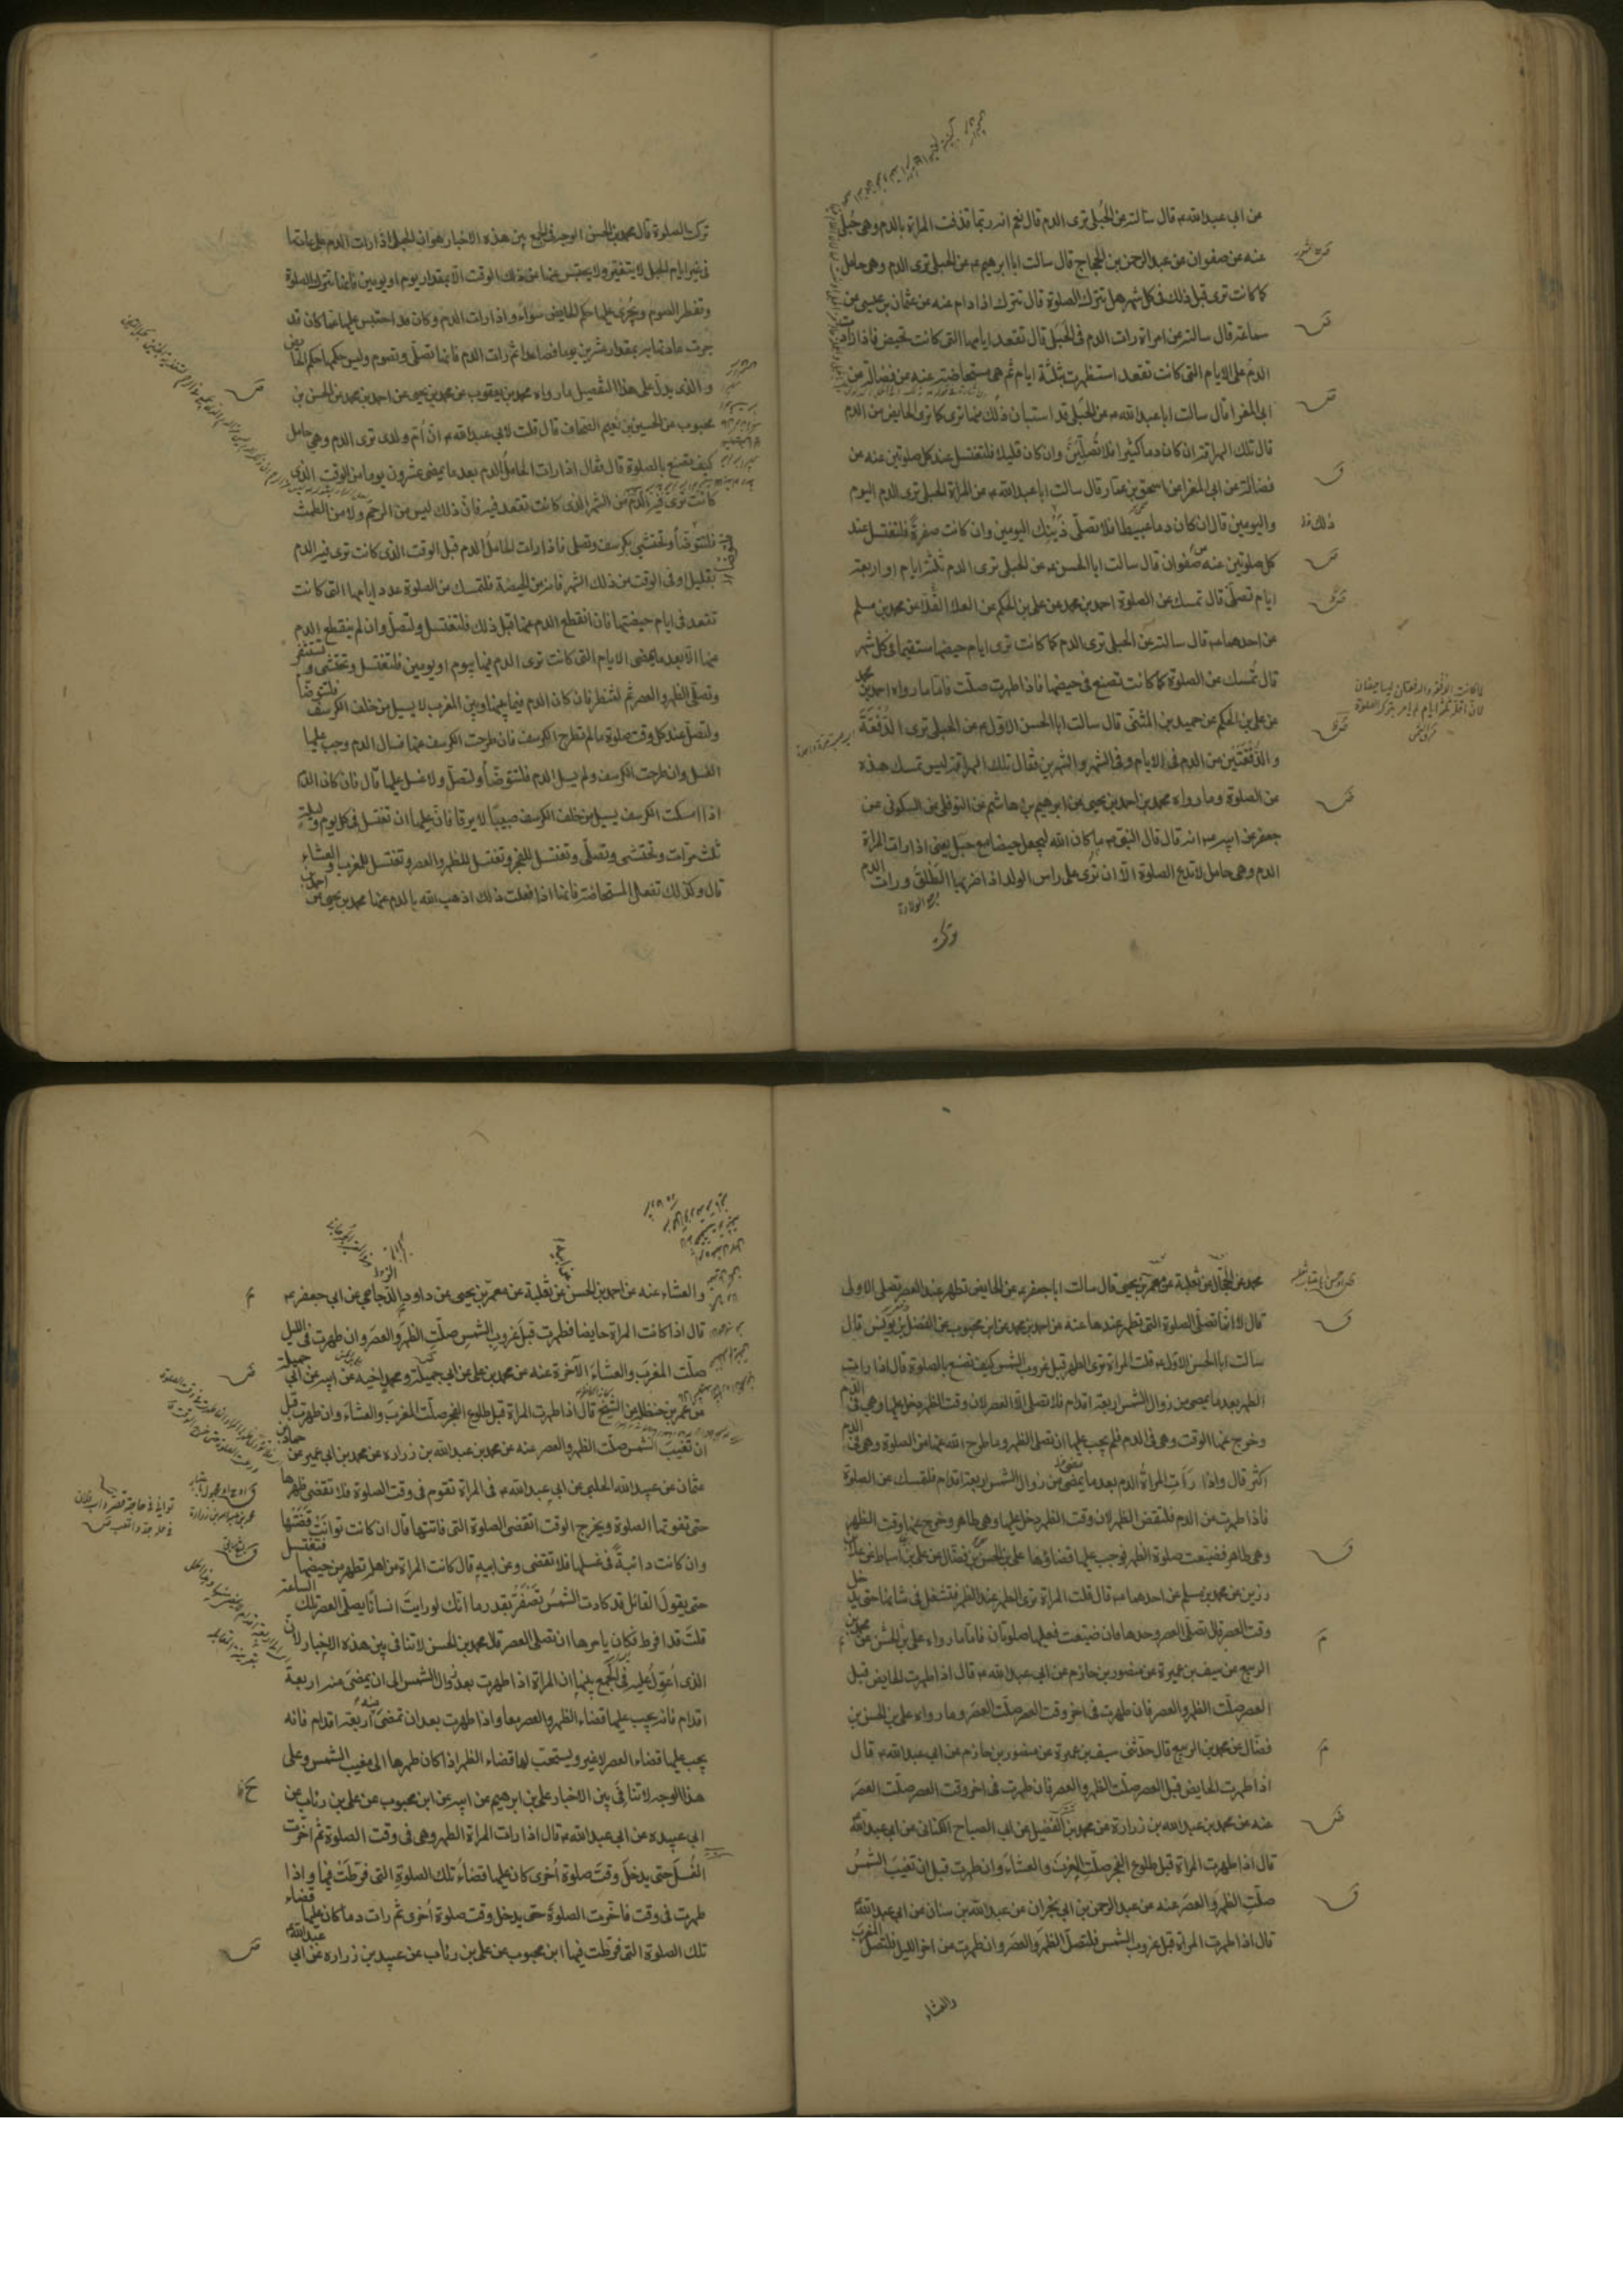 من ابى عبد الله ع قال سالته عن الحبلى ترى الدم قال نعم انه ربما قذفت المراة بالدم وهى حبلى
عنه عن صفوان عن عبد الرحمن بن الحجاج قال سالت ابا ابرهيم ع عن الحبلى ترى الدم وهى حامل
كما كانت ترى قبل ذلك فى كل شهر هل تترك الصلوة قال تترك اذا دام عنه عن عثمان بن عيسى عن
سماعة قال سالته عن امراة رات الدم فى الحبل قال تقعد ايامها التى كانت تحيض فاذا زاد
الدم على الايام التى كانت تقعد استظهرت بثلثة ايام ثم هى مستحاضة عنه عن فضالة عن
ابى المغرا قال سالت ابا عبد الله ع عن الحبلى قد استبان ذلك منها ترى كما ترى الحايض من الدم
قال تلك الهراقة ان كان دما كثيرا فلا تصلين وان كان قليلا فلتغتسل عند كل صلوتين عنه عن
فضالة عن ابى المغرا عن اسحق بن عمار قال سالت ابا عبد الله ع عن المراة الحبلى ترى الدم اليوم
واليومين قال ان كان دما عبيطا فلا تصلى ذينك اليومين وان كانت صفرة فلتغتسل عند
كل صلوتين عنه عن صفوان قال سالت ابا الحسن ع عن الحبلى ترى الدم ثلثة ايام او اربعة
ايام تصلى قال تمسك عن الصلوة احمد بن محمد عن على بن الحكم عن العلا القلا عن محمد بن مسلم
عن احدهما ع قال سالته عن الحبلى ترى الدم كما كانت ترى ايام حيضها مستقيما فى كل شهر
قال تمسك عن الصلوة كما كانت تصنع فى حيضها فاذا طهرت صلت فاما ما رواه احمد بن محمد
عن على بن الحكم عن حميد بن المثنى قال سالت ابا الحسن الاول ع عن الحبلى ترى الدفقة
والدفقتين من الدم فى الايام وفى الشهر والشهرين فقال تلك الهراقة ليس تمسك هذه
عن الصلوة وما رواه محمد بن احمد بن يحيى عن ابرهيم بن هاشم عن النوفلى عن السكونى عن
جعفر عن ابيه ع انه قال قال النبى ص ما كان الله ليجعل حيضا مع حبل يعنى اذا رات المراة
الدم وهى حامل لا تدع الصلوة الا ان ترى على راس الولد اذا ضربها الطلق ورات الدم
تركت الصلوة قال محمد بن الحسن الوجه فى الجمع بين هذه الاخبار هو ان الحبلى اذا رات الدم على عادتها
فى غير ايام الحبل لا يتغير ولا يحتبس عنها من ذلك الوقت الا بمقدار يوم او يومين فانها تترك الصلوة
وتفطر الصوم ويجرى عليها حكم الحايض سواء واذا رات الدم وكان قد احتبس عليها عما كان قد
جرت عادتها به بمقدار عشرين يوما فصاعدا ثم رات الدم فانها تصلى وتصوم وليس حكمها حكم الحايض
والذى يدل على هذا التفصيل ما رواه محمد بن يعقوب عن محمد بن يحيى عن احمد بن محمد عن الحسن بن
محبوب عن الحسين بن نعيم الصحاف قال قلت لابى عبد الله ع ان ام ولدى ترى الدم وهى حامل
كيف تصنع بالصلوة قال فقال اذا رات الحامل الدم بعد ما يمضى عشرون يوما من الوقت الذى
كانت ترى فيه الدم من الشهر الذى كانت تقعد فيه فان ذلك ليس من الرحم ولا من الطمث
فلتتوضأ وتحتشى بكرسف وتصلى فاذا رات الحامل الدم قبل الوقت الذى كانت ترى فيه الدم
بقليل او فى الوقت من ذلك الشهر فانه من الحيضة فلتمسك عن الصلوة عدد ايامها التى كانت
تقعد فى ايام حيضتها فان انقطع الدم عنها قبل ذلك فلتغتسل ولتصل وان لم ينقطع الدم
عنها الا بعد ما يمضى الايام التى كانت ترى الدم فيها بيوم او يومين فلتغتسل وتحتشى وتستثفر
وتصلى الظهر والعصر ثم لتنظر فان كان الدم فيما بينها وبين المغرب لا يسيل من خلف الكرسف فلتتوضأ
ولتصل عند كل وقت صلوة ما لم تطرح الكرسف فان طرحت الكرسف عنها فسال الدم وجب عليها
الغسل وان طرحت الكرسف ولم يسل الدم فلتتوضأ ولتصل ولا غسل عليها قال فان كان الدم
اذا امسكت الكرسف يسيل من خلف الكرسف صبيبا لا يرقا فان عليها ان تغتسل فى كل يوم وليلة
ثلث مرات وتحتشى وتصلى وتغتسل للفجر وتغتسل للظهر والعصر وتغتسل للمغرب والعشاء
قال وكذلك تفعل المستحاضة فانها اذا فعلت ذلك اذهب الله بالدم عنها محمد بن يحيى عن احمد بن
محمد عن الحجال عن ثعلبة عن معمر بن يحيى قال سالت ابا جعفر ع عن الحايض تطهر عند العصر تصلى الاولى
قال لا انما تصلى الصلوة التى تطهر عندها عنه عن احمد بن محمد عن ابن محبوب عن الفضل بن يونس قال
سالت ابا الحسن الاول ع قلت المراة ترى الطهر قبل غروب الشمس كيف تصنع بالصلوة قال اذا رات
الطهر بعد ما يمضى من زوال الشمس اربعة اقدام فلا تصلى الا العصر لان وقت الظهر دخل عليها وهى فى الدم
وخرج عنها الوقت وهى فى الدم فلم يجب عليها ان تصلى الظهر وما طرح الله عنها من الصلوة وهى فى الدم
اكثر قال واذا رأت المراة الدم بعد ما يمضى من زوال الشمس اربعة اقدام فلتمسك عن الصلوة
فاذا طهرت من الدم فلتقض الظهر لان وقت الظهر دخل عليها وهى طاهر وخرج عنها وقت الظهر
وهى طاهر فضيعت صلوة الظهر فوجب عليها قضاؤها على بن الحسن بن فضال عن على بن اسباط عن علا بن
رزين عن محمد بن مسلم عن احدهما ع قال قلت المراة ترى الطهر عند الظهر فتشتغل فى شانها حتى يدخل
وقت العصر قال تصلى العصر وحدها فان ضيعت فعليها صلوتان فاما ما رواه على بن الحسن عن محمد بن
الربيع عن سيف بن عميرة عن منصور بن حازم عن ابى عبد الله ع قال اذا طهرت الحايض قبل
العصر صلت الظهر والعصر فان طهرت فى اخر وقت العصر صلت العصر وما رواه على بن الحسن بن
فضال عن محمد بن الربيع قال حدثنى سيف بن عميرة عن منصور بن حازم عن ابى عبد الله ع قال
اذا طهرت الحايض قبل العصر صلت الظهر والعصر فان طهرت فى اخر وقت العصر صلت العصر
عنه عن محمد بن عبد الله بن زرارة عن محمد بن الفضيل عن ابى الصباح الكنانى عن ابى عبد الله ع
قال اذا طهرت المراة قبل طلوع الفجر صلت المغرب والعشاء وان طهرت قبل ان تغيب الشمس
صلت الظهر والعصر عنه عن عبد الرحمن بن ابى نجران عن عبد الله بن سنان عن ابى عبد الله ع
قال اذا طهرت المراة قبل غروب الشمس فلتصل الظهر والعصر وان طهرت من اخر الليل فلتصل المغرب
والعشاء
والعشاء عنه عن احمد بن الحسن عن ثعلبة عن معمر بن يحيى عن داود الزجاجى عن ابى جعفر ع
قال اذا كانت المراة حايضا فطهرت قبل غروب الشمس صلت الظهر والعصر وان طهرت فى الليل
صلت المغرب والعشاء الآخرة عنه عن محمد بن على عن ابى جميلة ومحمد اخيه عن ابيه عن ابى جميلة
عن عمر بن حنظلة عن الشيخ قال اذا طهرت المراة قبل طلوع الفجر صلت المغرب والعشاء وان طهرت قبل
ان تغيب الشمس صلت الظهر والعصر عنه عن محمد بن عبد الله بن زراره عن محمد بن ابى عمير عن حماد بن
عثمان عن عبيد الله الحلبى عن ابى عبد الله ع فى المراة تقوم فى وقت الصلوة فلا تقضى طهرها
حتى تفوتها الصلوة ويخرج الوقت اتقضى الصلوة التى فاتتها قال ان كانت توانت قضتها
وان كانت دائبة فى غسلها فلا تقضى وعن ابيه قال كانت المراة من اهلى تطهر من حيضها فتغتسل
حتى يقول القائل قد كادت الشمس تصفر بقدر ما انك لو رايت انسانا يصلى العصر تلك الساعة
قلت قد افرط فكان يامرها ان تصلى العصر قال محمد بن الحسن لا تنافى بين هذه الاخبار لان
الذى اعول عليه فى الجمع بينها ان المراة اذا طهرت بعد زوال الشمس الى ان يمضى منه اربعة
اقدام فانه يجب عليها قضاء الظهر والعصر معا واذا طهرت بعد ان تمضى منه اربعة اقدام فانه
يجب عليها قضاء العصر لا غير ويستحب لها قضاء الظهر اذا كان طهرها الى مغيب الشمس وعلى
هذا الوجه لا تنافى بين الاخبار على بن ابرهيم عن ابيه عن ابن محبوب عن على بن رئاب عن
ابى عبيده عن ابى عبد الله ع قال اذا رات المراة الطهر وهى فى وقت الصلوة ثم اخرت
الغسل حتى يدخل وقت صلوة اخرى كان عليها قضاء تلك الصلوة التى فرطت فيها واذا
طهرت فى وقت فاخرت الصلوة حتى يدخل وقت صلوة اخرى ثم رات دما كان عليها قضاء
تلك الصلوة التى فرطت فيها ابن محبوب عن على بن رئاب عن عبيد بن زراره عن ابى عبد الله ع